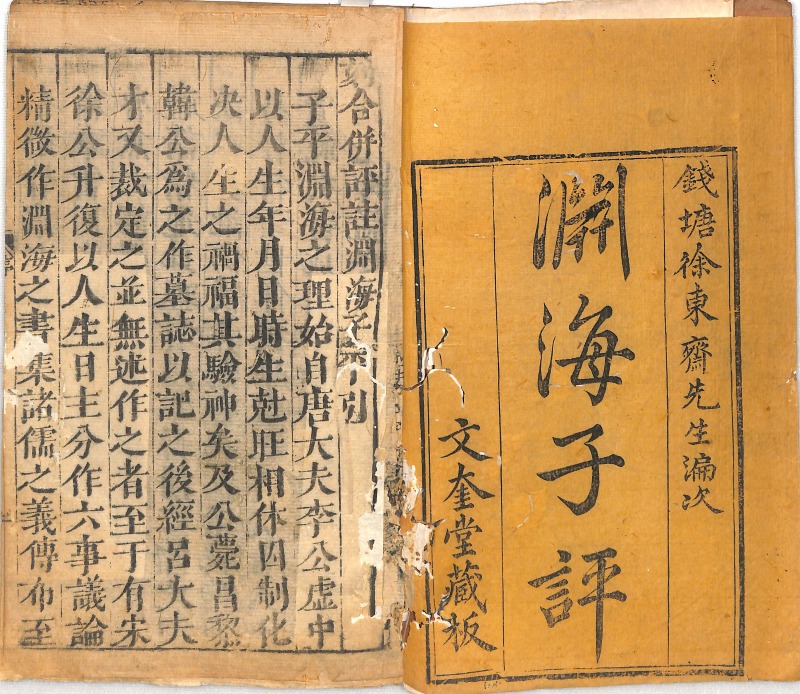 錢塘徐東齋先生漏次
淵海子評
文奎堂藏板
合併評註淵海子平引
子平淵海之理始自唐大夫李公虛中
以人生年月日時生尅旺相休囚制化
決人生之禍福其驗神矣及公薨昌黎
韓公爲之作墓誌以記之後經呂大夫
才又裁定之並無述作之者至于有宋
徐公升復以人生日主分作六事議論
精微作淵海之書集諸儒之義傳布至